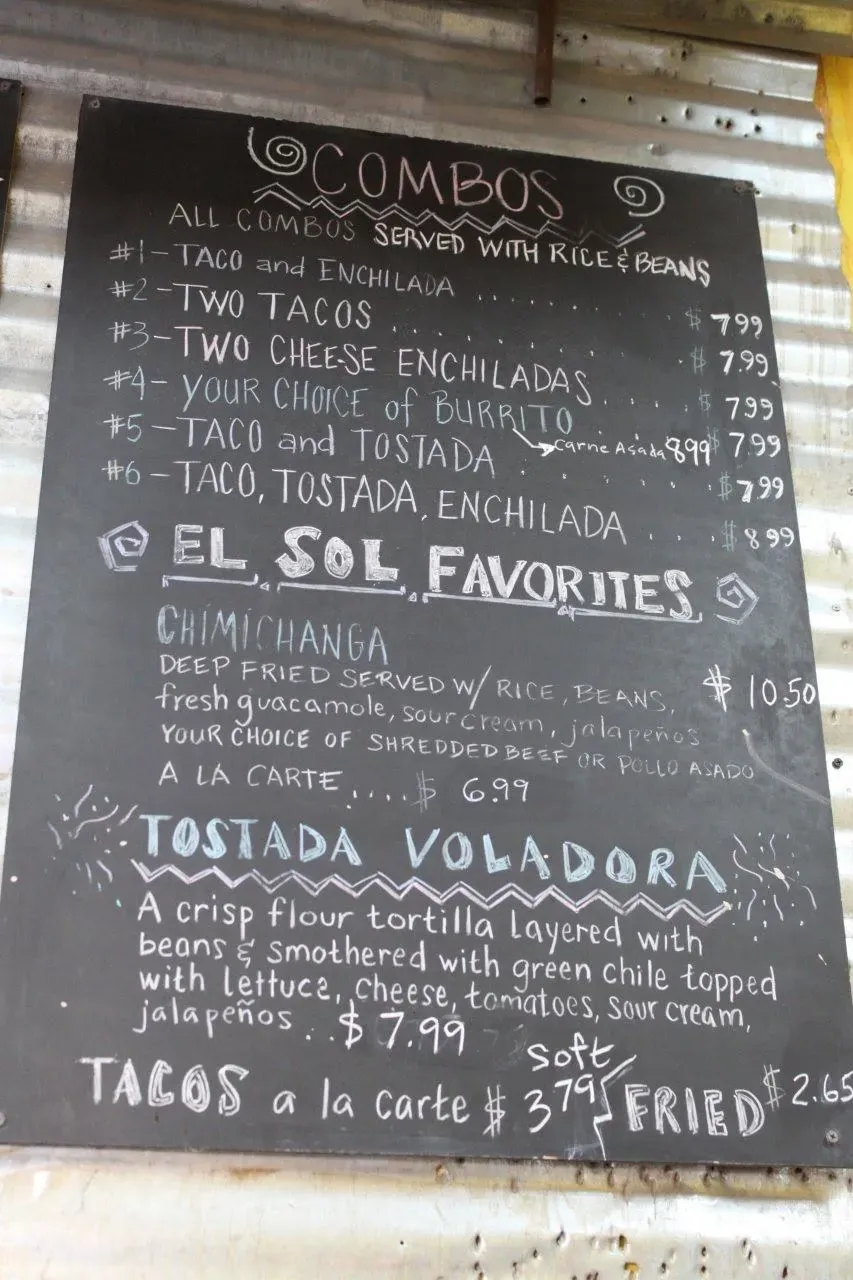 COMBOS
ALL COMBOS SERVED WITH RICE & BEANS
#1 - TACO and ENCHILADA ........ $ 7.99
#2 - TWO TACOS ........ $ 7.99
#3 - TWO CHEESE ENCHILADAS .... $ 7.99
#4 - YOUR CHOICE of BURRITO .... $ 7.99
Carne Asada 8.99
#5 - TACO and TOSTADA ...... $ 7.99
#6 - TACO, TOSTADA, ENCHILADA .... $ 8.99
EL SOL FAVORITES
CHIMICHANGA
DEEP FRIED SERVED W/ RICE, BEANS, $ 10.50
fresh guacamole, sour cream, jalapeños
YOUR CHOICE OF SHREDDED BEEF OR POLLO ASADO
A LA CARTE .... $ 6.99
TOSTADA VOLADORA
A crisp flour tortilla Layered with
beans & smothered with green chile topped
with lettuce, cheese, tomatoes, sour cream,
jalapeños .. $ 7.99
TACOS a la carte $ 3.79 soft FRIED $ 2.65